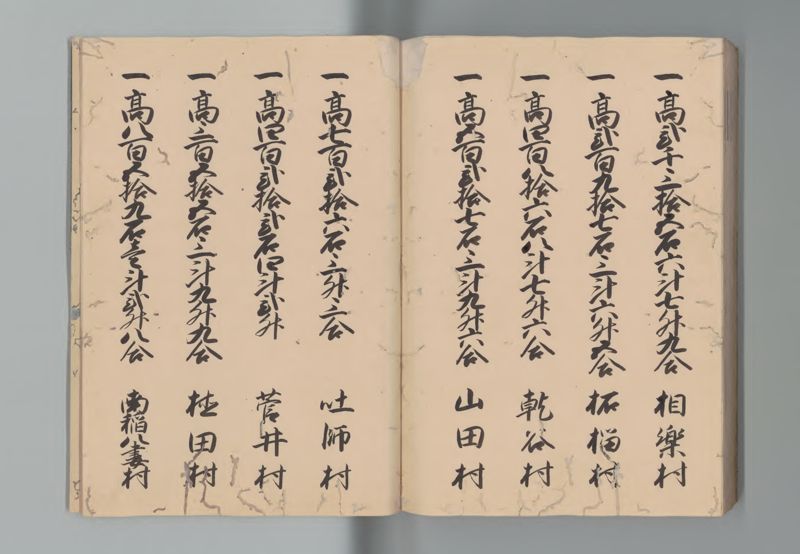 一高弐千三拾五石六斗七升九合 相楽村
一高弐百九拾七石三斗六升五合 柘榴村
一高四百八拾六石八斗七升六合 乾谷村
一高五百弐拾七石三斗九升六合 山田村
一高七百弐拾六石三升三合 吐師村
一高四百弐拾弐石四斗弐升 菅井村
一高三百五拾五石三斗九升九合 植田村
一高八百五拾九石壱斗弐升八合 南稲八妻村